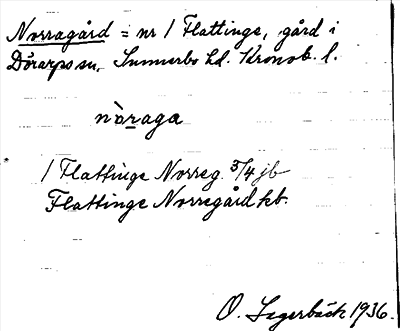 Norragård = nr 1 Flattinge, gård i
Dörarps sn, Sunnerbo hd. Kronob. l.
nòraga
1 Flattinge Norreg. 5/4 jb
Flattinge Norregård kb.
O. Lagerbäck 1936.